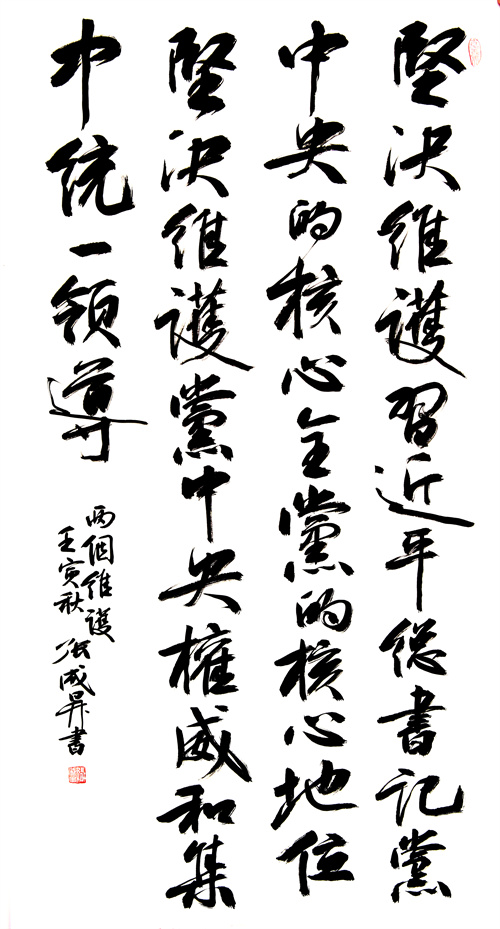 堅決維護習近平總書記黨
中央的核心全黨的核心地位
堅決維護黨中央權威和集
中統一領導
兩個維護
壬寅秋 張成昇書